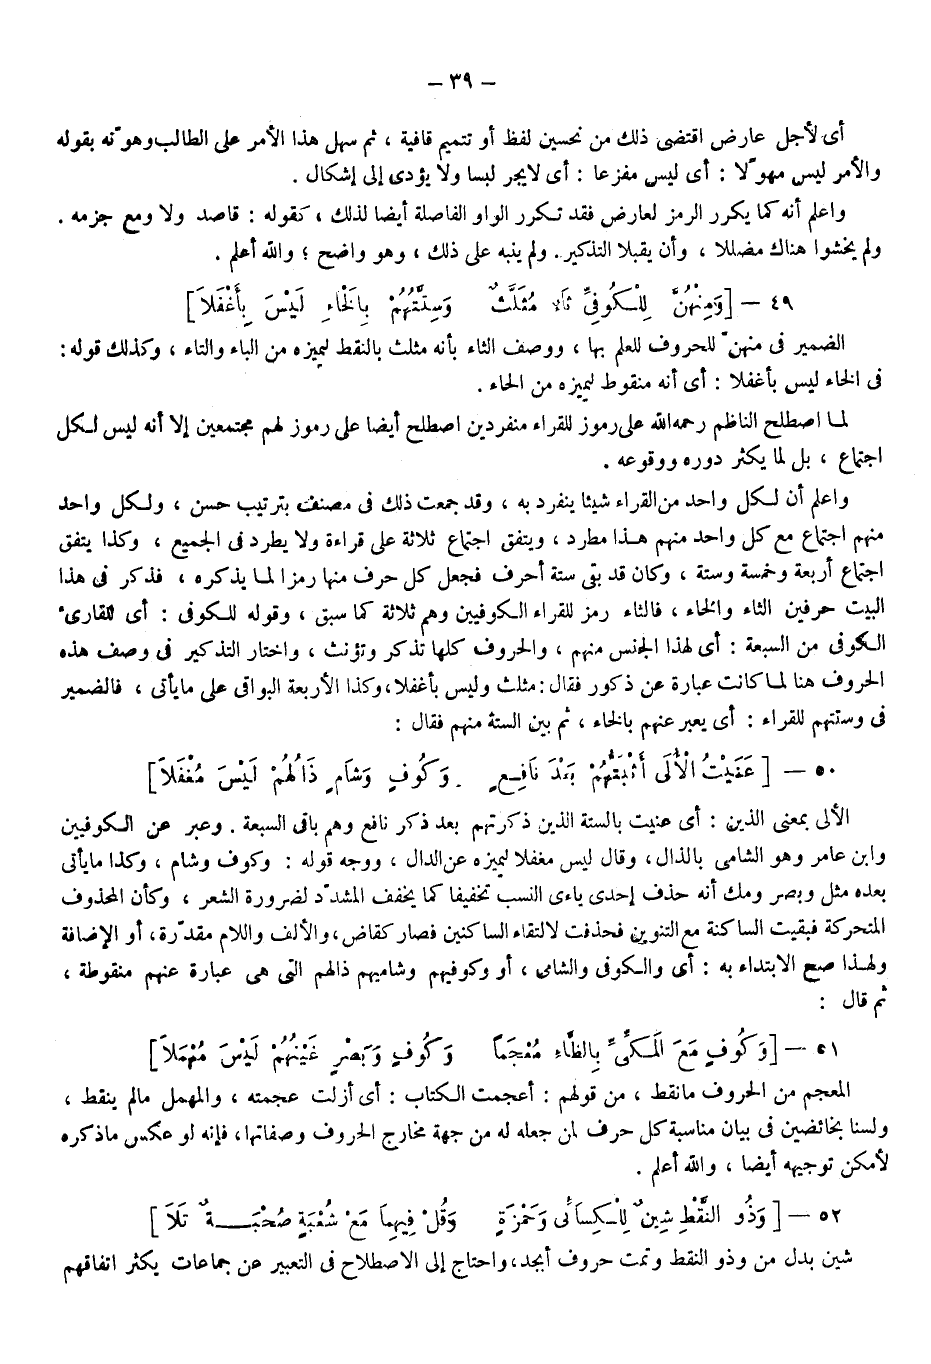 – ٣٩ –
أى لأجل عارض اقتضى ذلك من تحسين لفظ أو تتميم قافية ، ثم سهل هذا الأمر على الطالب وهوّنه بقوله
والأمر ليس مهوّلا : أى ليس مفزعا : أى لايجر لبسا ولا يؤدى إلى إشكال .
واعلم أنه كما يكرر الرمز لعارض فقد تكرر الواو الفاصلة أيضا لذلك ، كقوله : قاصد ولا ومع جزمه .
ولم يخشوا هناك مضللا ، وأن يقبلا التذكير . ولم ينبه على ذلك ، وهو واضح ؛ والله أعلم .
٤٩ – [وَمِنْهُنَّ لِلْكُوفِىِّ ثَاءٌ مُثَلَّثٌ وَسِتَّتُهُمْ بِالْخَاءِ لَيْسَ بِأَغْفَلاَ]
الضمير فى منهنّ للحروف للعلم بها ، ووصف الثاء بأنه مثلث بالنقط ليميزه من الباء والتاء ، وكذلك قوله :
فى الخاء ليس بأغفلا : أى أنه منقوط ليميزه من الحاء .
لما اصطلح الناظم رحمه الله على رموز للقراء منفردين اصطلح أيضا على رموز لهم مجتمعين إلا أنه ليس لكل
اجتماع ، بل لما يكثر دوره ووقوعه .
واعلم أن لكل واحد من القراء شيئا ينفرد به ، وقد جمعت ذلك فى مصنف بترتيب حسن ، ولكل واحد
منهم اجتماع مع كل واحد منهم هذا مطرد ، ويتفق اجتماع ثلاثة على قراءة ولا يطرد فى الجميع ، وكذا يتفق
اجتماع أربعة وخمسة وستة ، وكان قد بقى ستة أحرف فجعل كل حرف منها رمزا لما يذكره ، فذكر فى هذا
البيت حرفين الثاء والخاء ، فالثاء رمز للقراء الكوفيين وهم ثلاثة كما سبق ، وقوله للكوفى : أى للقارىء
الكوفى من السبعة : أى لهذا الجنس منهم ، والحروف كلها تذكر وتؤنث ، واختار التذكير فى وصف هذه
الحروف هنا لما كانت عبارة عن ذكور فقال : مثلث وليس بأغفلا، وكذا الأربعة البواقى على مايأتى ، فالضمير
فى وستتهم للقراء : أى يعبر عنهم بالخاء ، ثم بين الستة منهم فقال :
٥٠ – [عَنَيْتُ الْأُلَى أَثْبَتُّهُمْ بَعْدَ نَافِعٍ وَكُوفٍ وَشَامٍ ذَالُهُمْ لَيْسَ مُغْفَلاَ]
الألى بمعنى الذين : أى عنيت بالستة الذين ذكرتهم بعد ذكر نافع وهم باقى السبعة . وعبر عن الكوفيين
وابن عامر وهو الشامى بالذال ، وقال ليس مغفلا ليميزه عن الدال ، ووجه قوله : وكوف وشام ، وكذا مايأتى
بعده مثل وبصر ومك أنه حذف إحدى ياءى النسب تخفيفا كما يخفف المشدّد لضرورة الشعر ، وكأن المحذوف
المتحركة فبقيت الساكنة مع التنوين فحذفت لالتقاء الساكنين فصار كقاض، والألف واللام مقدّرة ، أو الإضافة
ولهذا صح الابتداء به : أى والكوفى والشامى ، أو وكوفيهم وشاميهم ذالهم التى هى عبارة عنهم منقوطة ،
ثم قال :
٥١ – [وَكُوفٍ مَعَ الْمَكِّىِّ بِالظَّاءِ مُعْجَمًا وَكُوفٍ وَبَصْرٍ غَيْنُهُمْ لَيْسَ مُهْمَلاَ]
المعجم من الحروف مانقط ، من قولهم : أعجمت الكتاب : أى أزلت عجمته ، والمهمل مالم ينقط ،
ولسنا بخائضين فى بيان مناسبة كل حرف لمن جعله له من جهة مخارج الحروف وصفاتها ، فإنه لو عكس ماذكره
لأمكن توجيهه أيضا ، والله أعلم .
٥٢ – [وَذُو النَّقْطِ شِينٌ لِلْكِسَائى وَحَمْزَةٍ وَقُلْ فِيهِمَا مَعْ شُعْبَةٍ صُحْبَةٌ تَلاَ]
شين بدل من وذو النقط وتمت حروف أبجد، واحتاج إلى الاصطلاح فى التعبير عن جماعات يكثر اتفاقهم